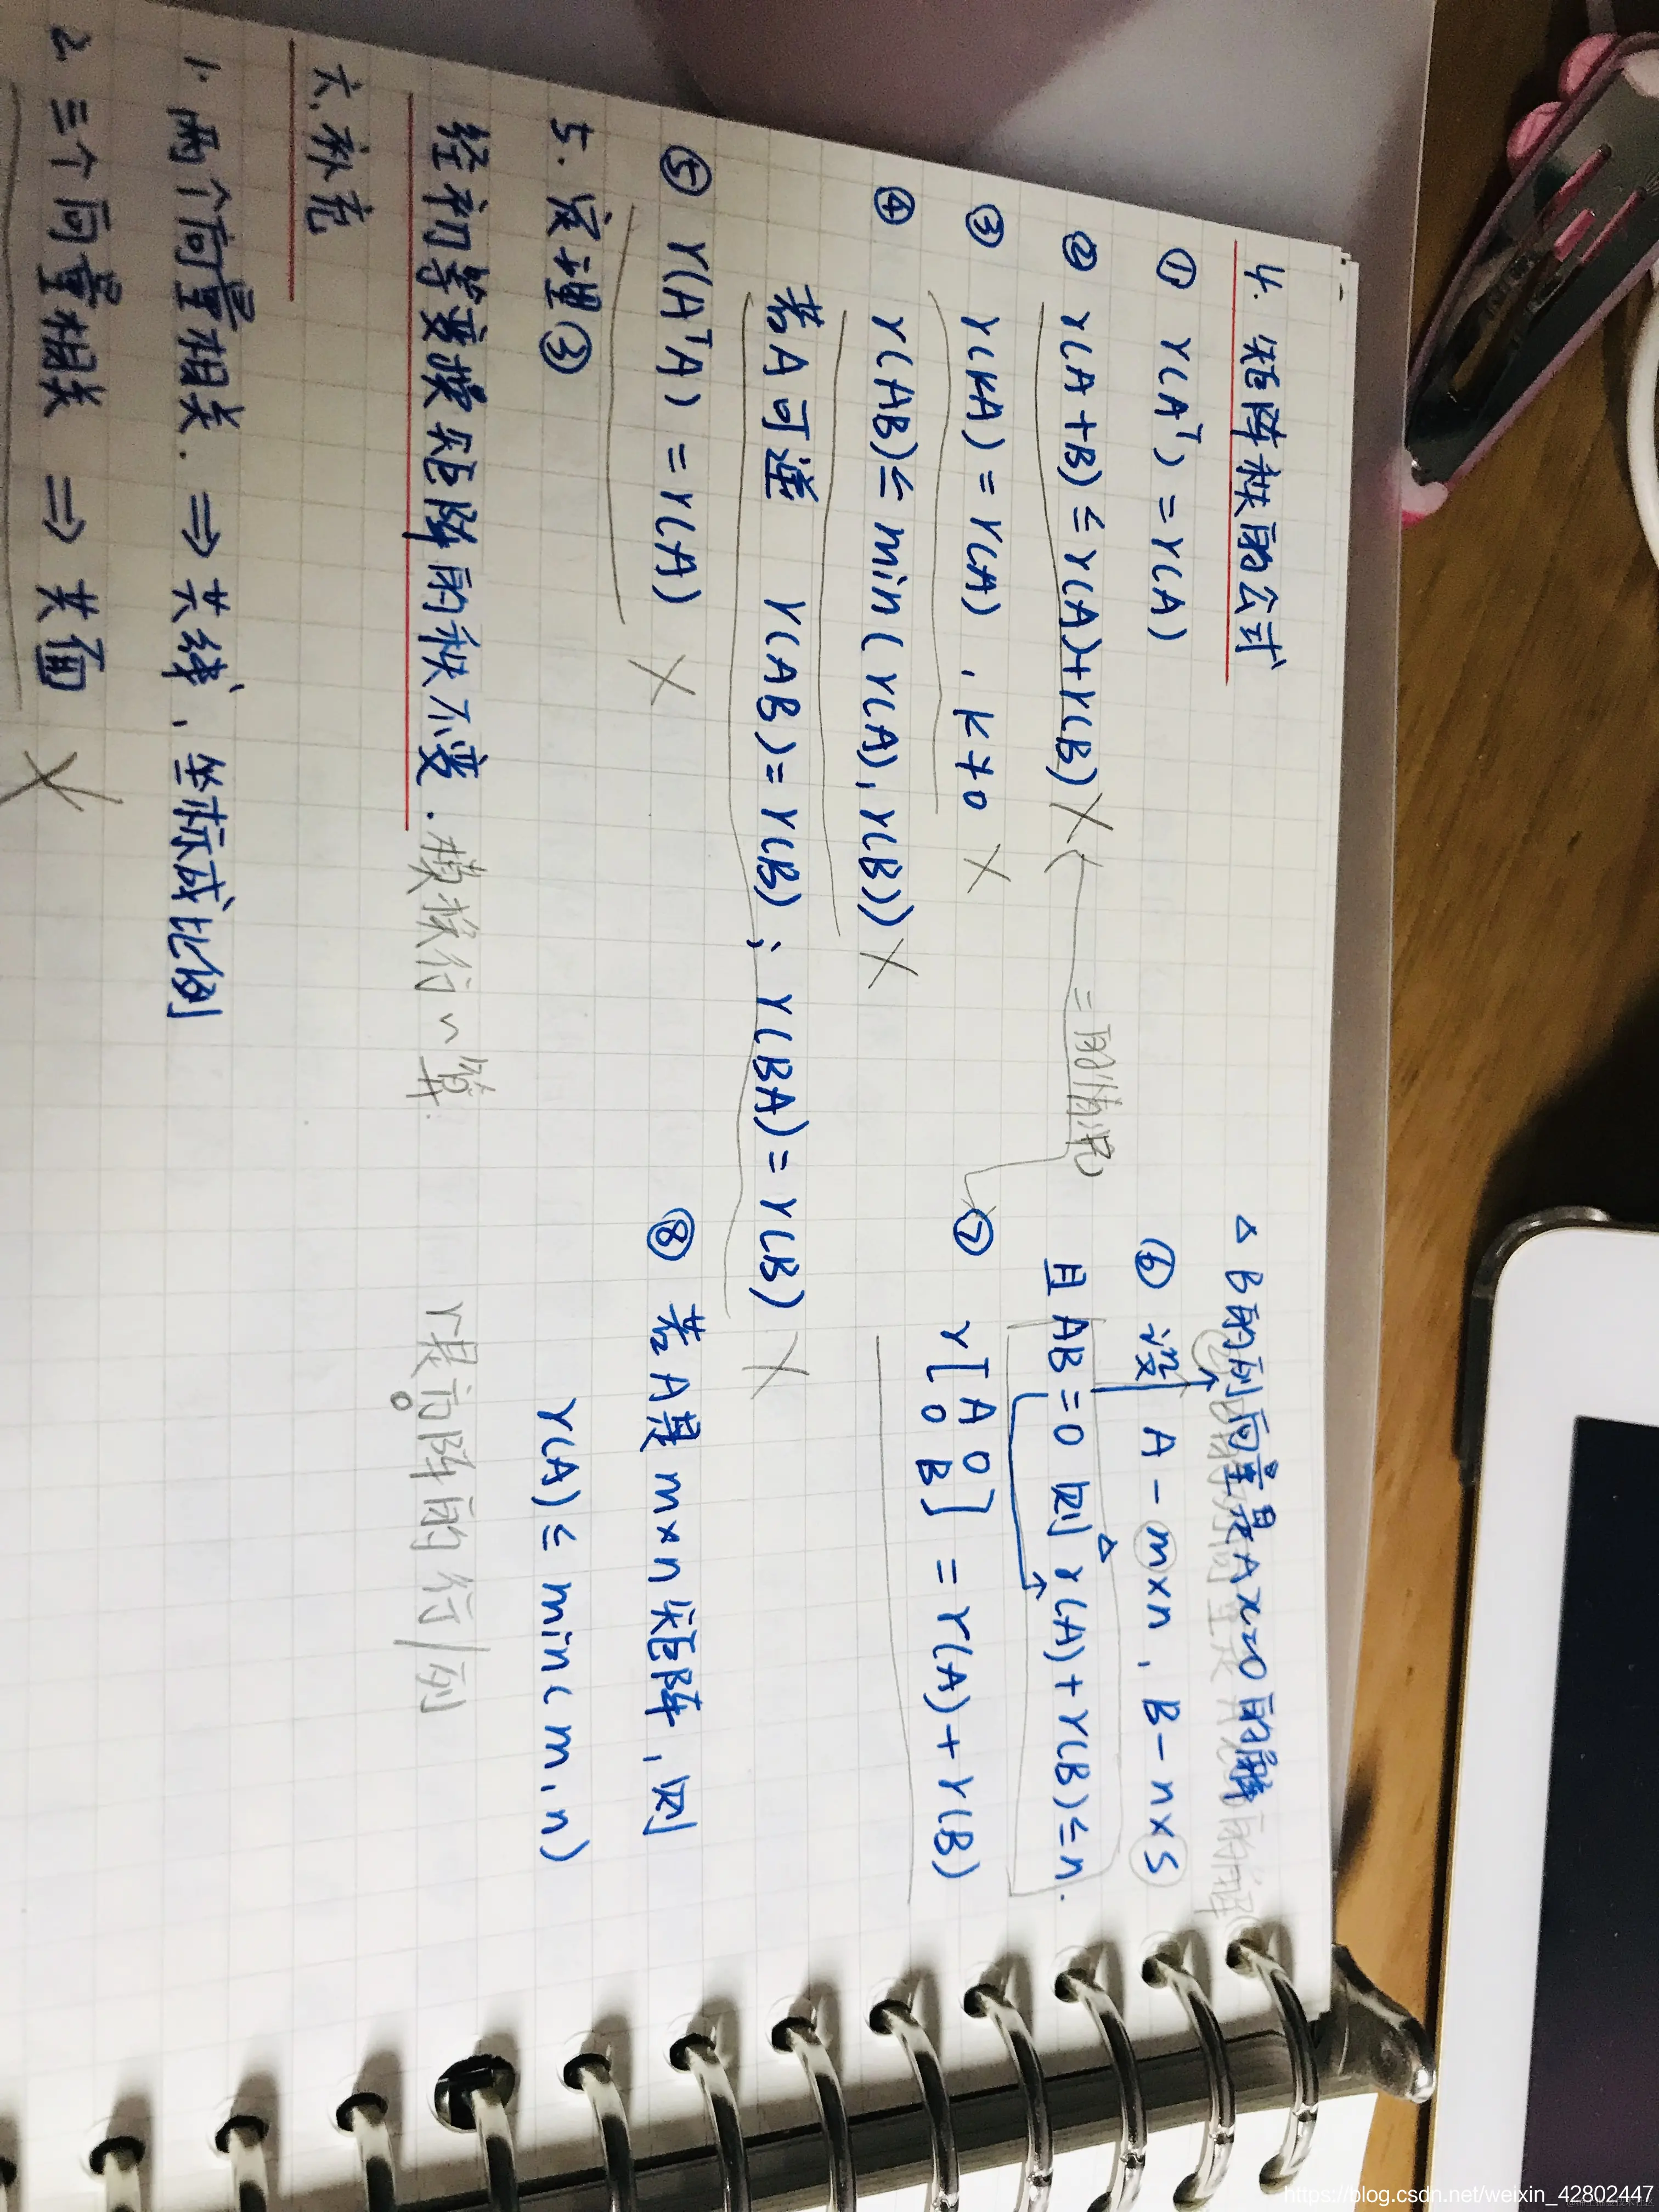 4. 矩阵秩的公式
① r(Aᵀ) = r(A)
② r(A+B) ≤ r(A)+r(B) ×
= 的情况
③ r(kA) = r(A) , k≠0 ×
④ r(AB) ≤ min(r(A), r(B)) ×
若A可逆 r(AB) = r(B) ; r(BA) = r(B) ×
⑤ r(AᵀA) = r(A) ×
5. 定理③
经初等变换矩阵的秩不变.
六. 补充
1. 两个向量相关. ⇒ 共线, 坐标成比例
2. 三个向量相关 ⇒ 共面 ×
△ B的列向量是Ax=0的解
⑥ 设 A - m×n , B - n×s
且 AB = 0 则 r(A) + r(B) ≤ n.
△
⑦ r[A 0
0 B] = r(A) + r(B)
⑧ 若A是 m×n 矩阵, 则
r(A) ≤ min(m, n)
r是方阵的行/列
https://blog.csdn.net/weixin_42802447